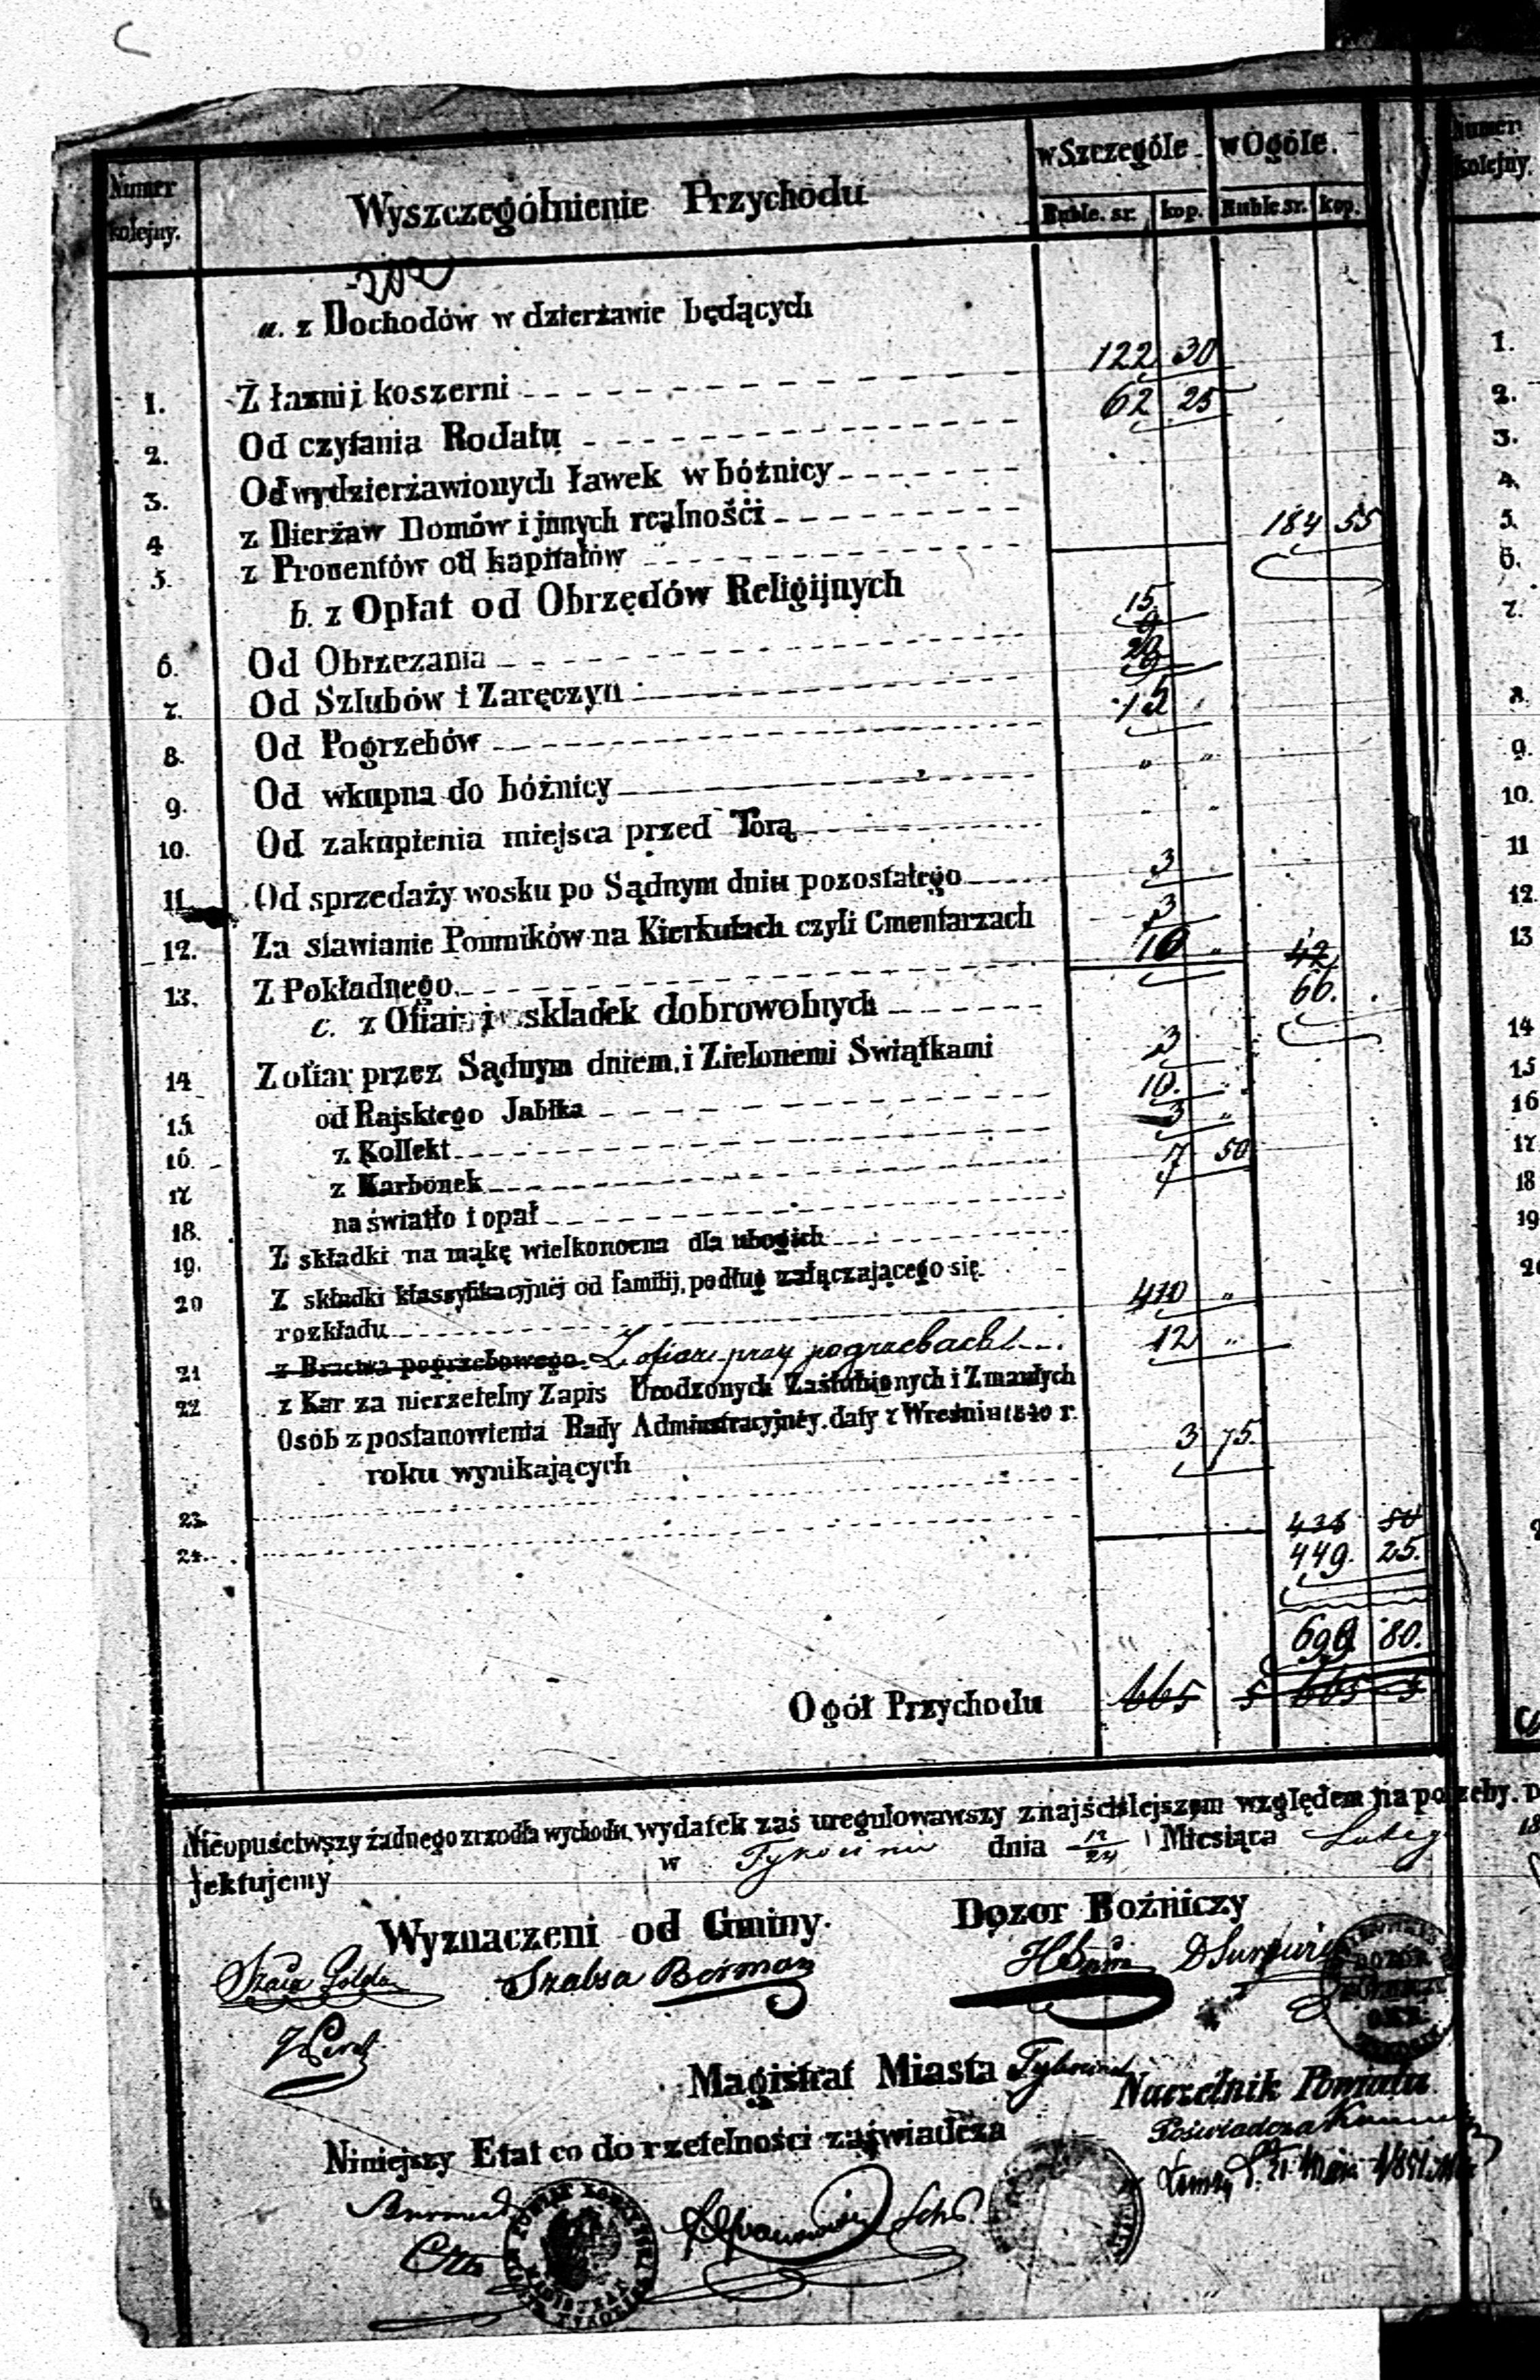 Numer kolejny.
Wyszczególnienie Przychodu
w Szczególe w Ogóle.
Ruble. sr. kop. Ruble sr. kop.
a. z Dochodów w dzierżawie będących
1. Z łaźni i koszerni 122 30
2. Od czytania Rodału 62 25
3. Od wydzierżawionych ławek w bóżnicy
4 z Dierżaw Domów i jnnych realnośći
5. z Procentów od kapitałów 184 55
b. z Opłat od Obrzędów Religijnych
6. Od Obrzezania 15
7. Od Szlubów i Zaręczyn 20
8. Od Pogrzebów 15
9. Od wkupna do bóżnicy " "
10. Od zakupienia miejsca przed Torą
11. Od sprzedaży wosku po Sądnym dniu pozostałego 3
12. Za stawianie Pomników na Kierkutach czyli Cmentarzach 3
13. Z Pokładnego 10 " 42
66.
c. z Ofiar i składek dobrowolnych
14 Z ofiar przez Sądnym dniem, i Zielonemi Swiątkami 3
15 od Rajskiego Jabłka 10.
16. z Kollekt 3 "
17 z Karbonek 7 50
18. na światło i opał
19. Z składki na mąkę wielkonocna dla ubogich
20 Z składki klassyfikacyjnéj od familij, podług załączającego się
rozkładu 410 "
21 z Bractwa pogrzebowego. Z ofiar przy pogrzebach 12 "
22 z Kar za nierzetelny Zapis Urodzonych Zaślubionych i Zmarłych
Osób z postanowienia Rady Administracyjnéy. daty z Wreśnia 1840 r.
roku wynikających 3 75.
23.
24.
449. 25.
699 80.
Ogół Przychodu 665 5 665 5
Nieopuściwszy żadnego zrzodła wychodu, wydatek zaś uregulowawszy z najściślejszym względem na potrzeby.
jektujemy w Tykocinie dnia 12/24 Miesiąca Lutego
Wyznaczeni od Gminy. Dozor Bożniczy
Szabsa Berman
Magistrat Miasta Tykocina
Naczelnik Powiatu
Poświadcza
Niniejszy Etat co do rzetelności zaświadcza
Burmistrz